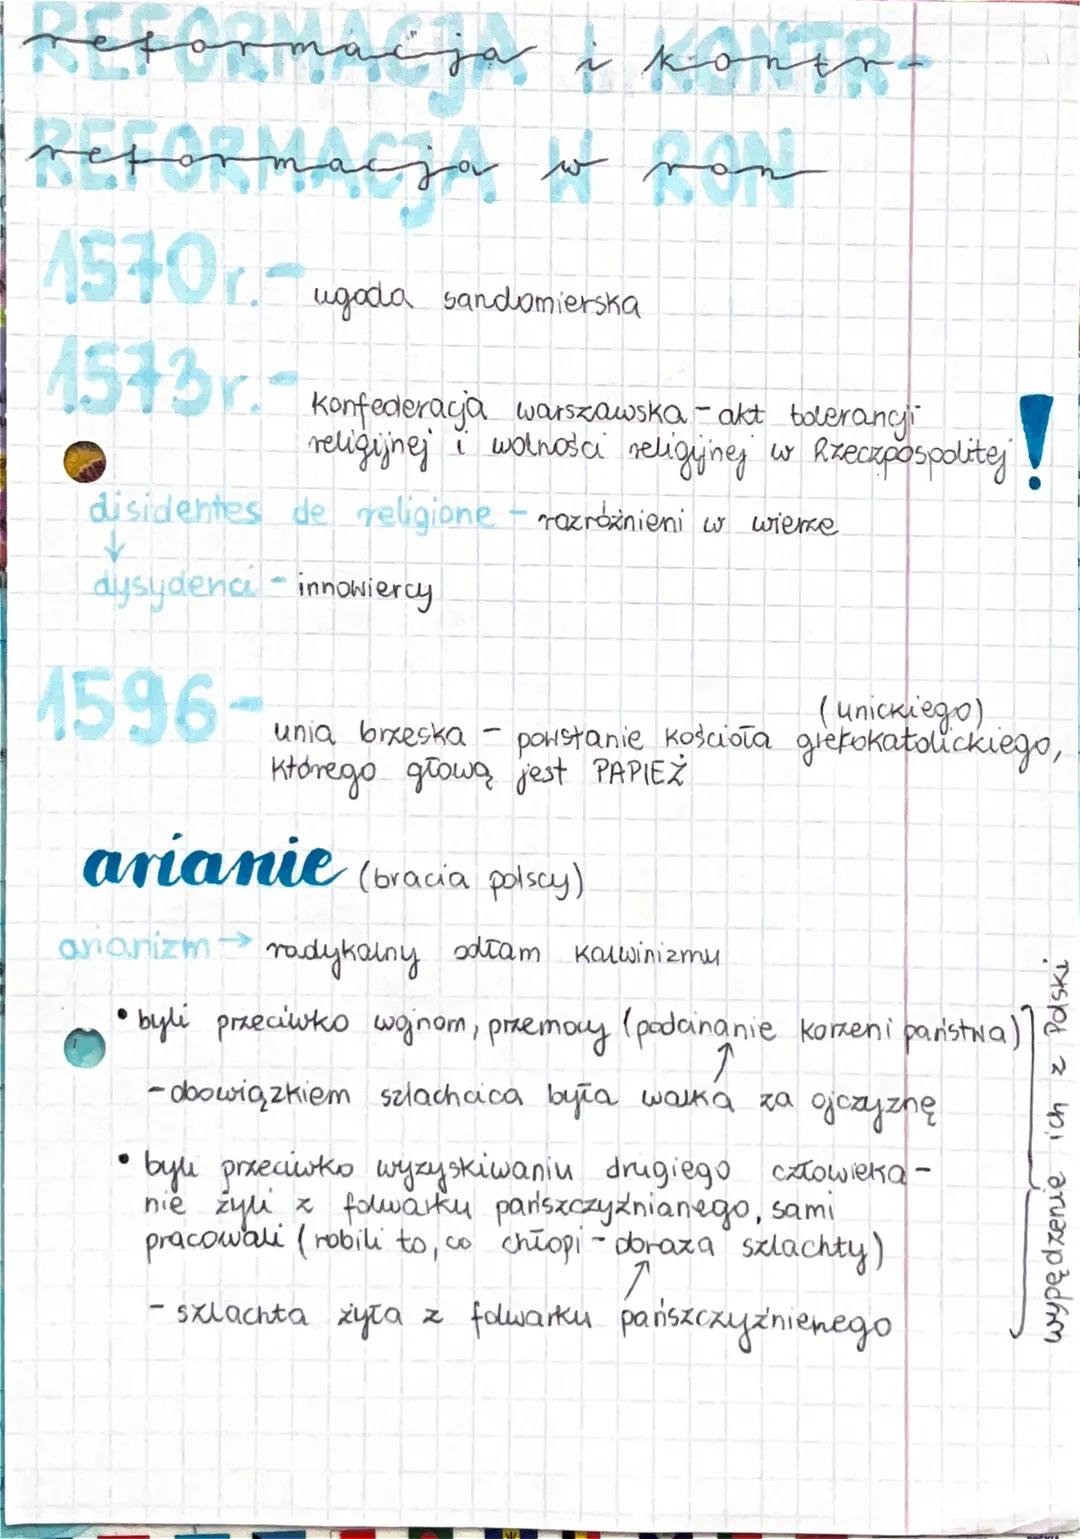 reformacja i kontr-
reformacja w ron
1570r. - ugoda sandomierska
1573r. - konfederacja warszawska - akt tolerancji
religijnej i wolności religijnej w Rzeczpospolitej !
disidentes de religione - rozróżnieni w wierze
↓
dysydenci - innowiercy
1596 - (unickiego)
unia brzeska - powstanie kościoła grekokatolickiego,
którego głową jest PAPIEŻ
arianie (bracia polscy)
arianizm → radykalny odłam kalwinizmu
• byli przeciwko wojnom, przemocy (podcinanie korzeni państwa)
- obowiązkiem szlachcica była walka za ojczyznę
• byli przeciwko wyzyskiwaniu drugiego człowieka -
nie żyli z folwarku pańszczyźnianego, sami
pracowali (robili to, co chłopi - obraza szlachty)
- szlachta żyła z folwarku pańszczyźnienego
wypędzenie ich z Polski